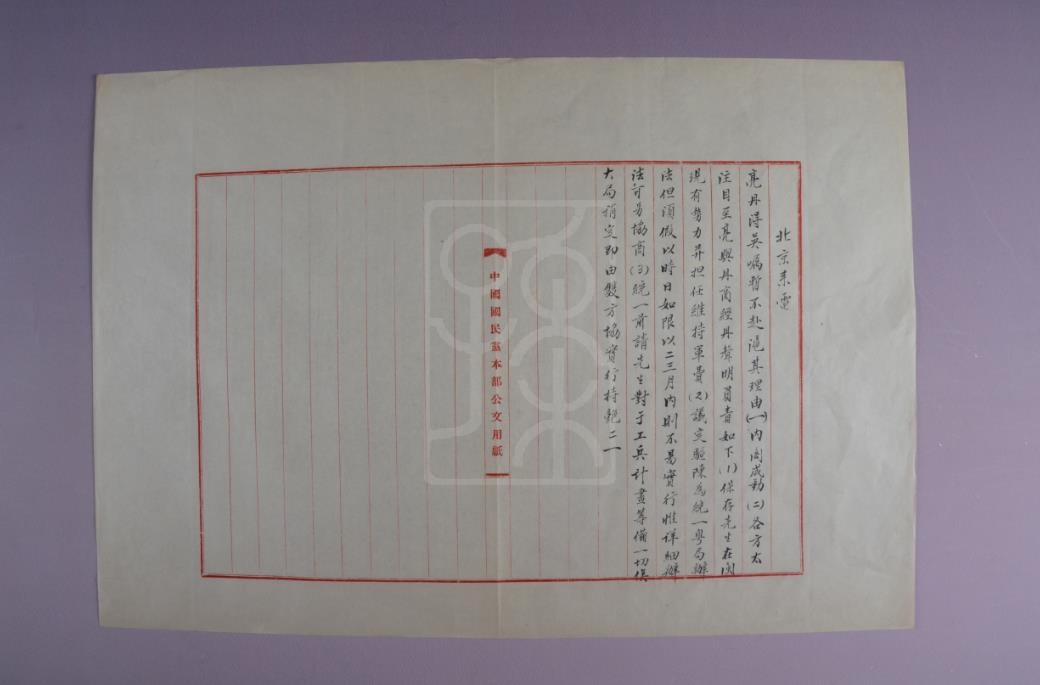 北京来電
亮丹得吳囑暫不赴滬其理由(一)內閣成動(二)各方太
注目至亮與丹商經丹聲明員責如下(1)保存先生在閩
現有勢力并担任維持軍費(2)議定驅陳為統一粵局辦
法但須假以時日如限以二三月內則不易實行惟詳細辦
法可另協商(3)統一前請先生對于工兵計畫籌備一切俟
大局稍定即由雙方協實行持艳二一
中國國民黨本部公文用紙